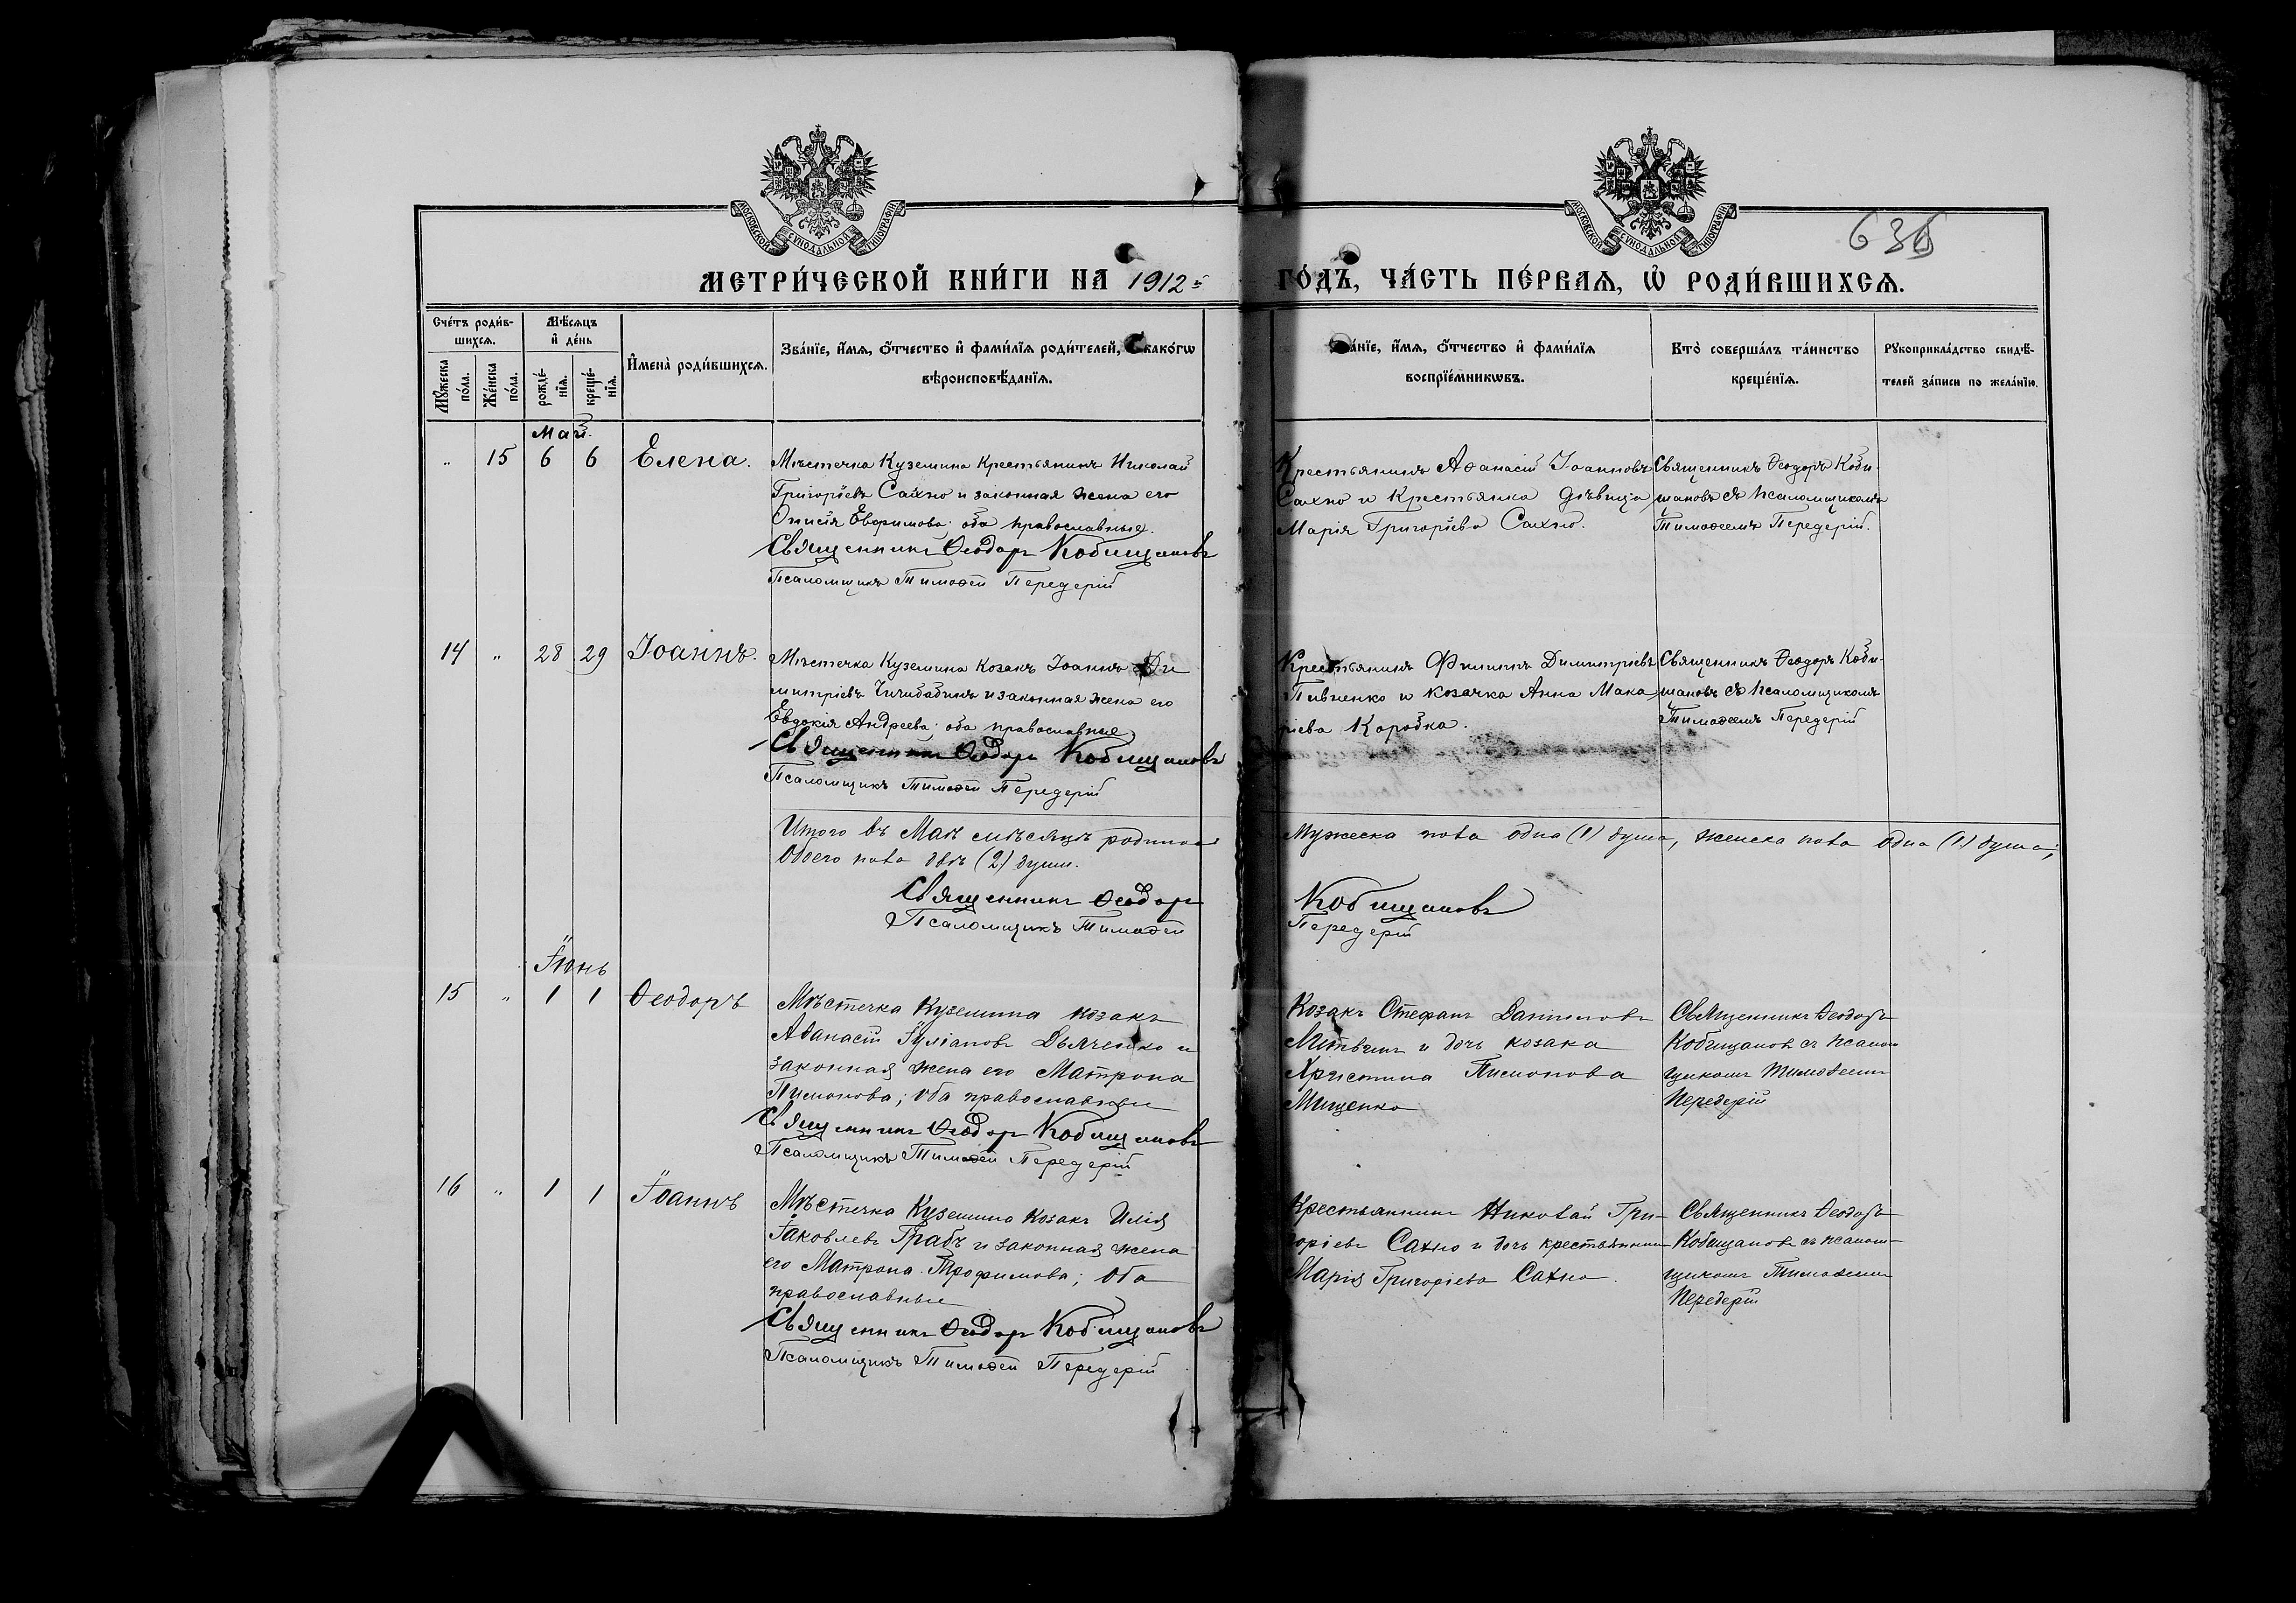 МОСКОВСКОЙ СѴНОДАЛЬНОЙ ТИПОГРАФІИ
МОСКОВСКОЙ СѴНОДАЛЬНОЙ ТИПОГРАФІИ
636
МЕТРИ́ЧЕСКОЙ КНИ́ГИ НА 1912й ГО́ДЪ, ЧА́СТЬ ПЕ́РВАѦ, Ѽ РОДИ́ВШИХСѦ.
Сче́тъ роди́в-
шихсѧ.
Мꙋ́жеска по́ла.
Же́нска по́ла.
Мѣ́сѧцъ
и҆ де́нь
рожде́-
нїѧ.
креще́-
нїѧ.
И҆мена̀ роди́вшихсѧ.
Зва́нїе, и҆́мѧ, ѻ҆́тчество и҆ фами́лїѧ роди́телей, и҆ како́гѡ
вѣроисповѣ́данїѧ.
Зва́нїе, и҆́мѧ, ѻ҆́тчество и҆ фами́лїѧ
воспрїе́мникѡвъ.
Кто̀ соверша́лъ та́инство
креще́нїѧ.
Рꙋкоприкла́дство свидѣ́-
телей за́писи по жела́нїю.
Май.
" 15 6 6 Елена.
Мѣстечка Куземина Крестьянинъ Николай
Григоріевъ Сахно и законная жена его
Онисія Евфимова; оба православные.
Священникъ Ѳеодоръ Кобищановъ
Псаломщикъ Тимоѳей Передерій
Крестьянинъ Аѳанасій Іоанновъ
Сахно и Крестьянка дѣвица
Марія Григоріева Сахно.
Священникъ Ѳеодоръ Коби-
щановъ съ псаломщикомъ
Тимоѳеемъ Передерій.
14 " 28 29 Іоаннъ.
Мѣстечка Куземина Козакъ Іоаннъ Ди
митріевъ Чичибабинъ и законная жена его
Евдокія Андреева; оба православные
Священникъ Ѳеодоръ Кобищановъ
Псаломщикъ Тимоѳей Передерій
Крестьянинъ Филиппъ Димитріевъ
Пивненко и козачка Анна Мака
ріева Коробка.
Священникъ Ѳеодоръ Коби-
щановъ съ псаломщикомъ
Тимоѳеемъ Передерій
Итого въ Маѣ мѣсяцѣ родилось Мужеска пола одна (1) душа, женска пола одна (1) душа;
Обоего пола двѣ (2) души.
Священникъ Ѳеодоръ Кобищановъ
Псаломщикъ Тимоѳей Передерій
Іюнь
15 " 1 1 Ѳеодоръ
Мѣстечка Куземина козакъ
Аѳанасій Іуліановъ Дьяченко и
законная жена его Матрона
Пимонова; оба православные
Священникъ Ѳеодоръ Кобищановъ
Псаломщикъ Тимоѳей Передерій
Козакъ Стефанъ Данииловъ
Литвинъ и дочь козака
Христина Пимонова
Мищенко
Священникъ Ѳеодоръ
Кобищановъ съ псалом
щикомъ Тимоѳеемъ
Передерій
16 " 1 1 Іоаннъ
Мѣстечка Куземина Козакъ Илія
Іаковлевъ Грабъ и законная жена
его Матрона Трофимова; оба
православные
Священникъ Ѳеодоръ Кобищановъ
Псаломщикъ Тимоѳей Передерій
Крестьянинъ Николай Гри-
горіевъ Сахно и дочь крестьянина
Марія Григоріева Сахно.
Священникъ Ѳеодоръ
Кобищановъ съ псалом-
щикомъ Тимоѳеемъ
Передерій